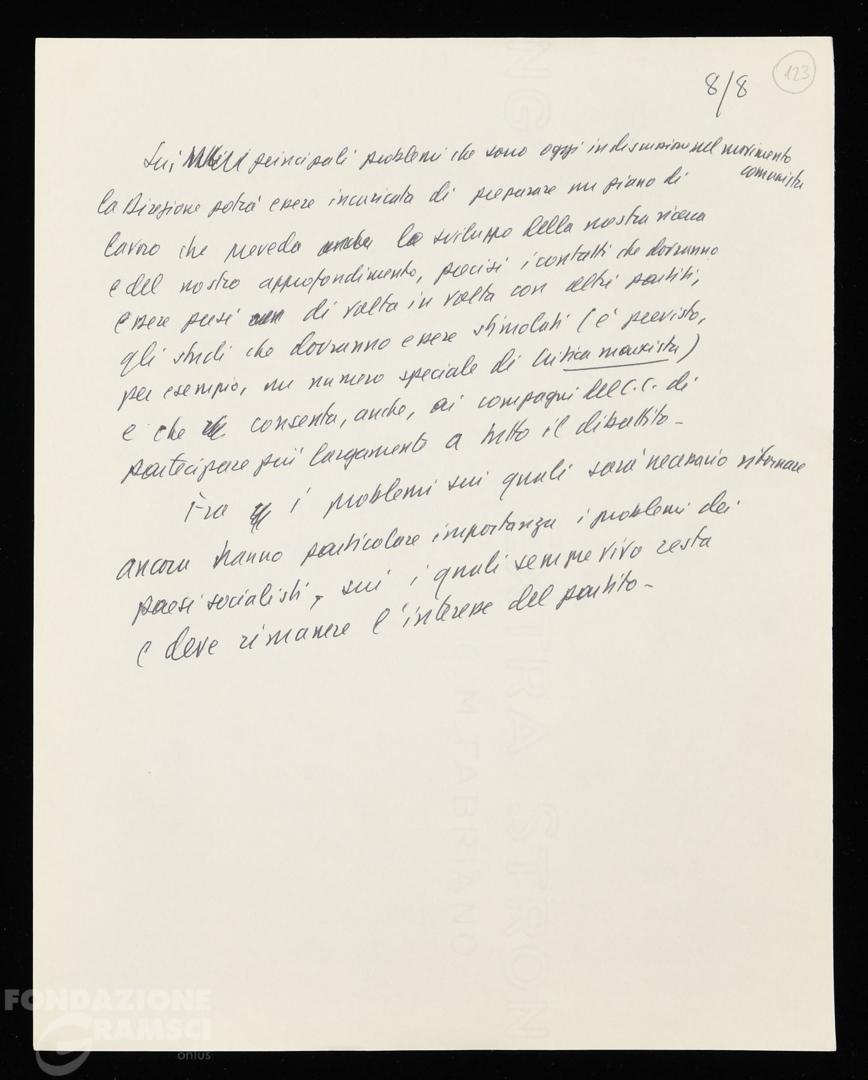 8/8
123
Sui principali problemi che sono oggi in discussione nel movimento
comunista
la Direzione potrà essere incaricata di preparare un piano di
lavoro che preveda lo sviluppo della nostra ricerca
e del nostro approfondimento, precisi i contatti che dovranno
essere presi di volta in volta con altri partiti,
gli studi che dovranno essere stimolati (è previsto,
per esempio, un numero speciale di Critica marxista)
e che consenta, anche, ai compagni del C.C. di
partecipare più largamente a tutto il dibattito.
Fra i problemi sui quali sarà necessario ritornare
ancora hanno particolare importanza i problemi dei
paesi socialisti, sui i quali sempre vivo resta
e deve rimanere l'interesse del partito.
FONDAZIONE
GRAMSCI
onlus